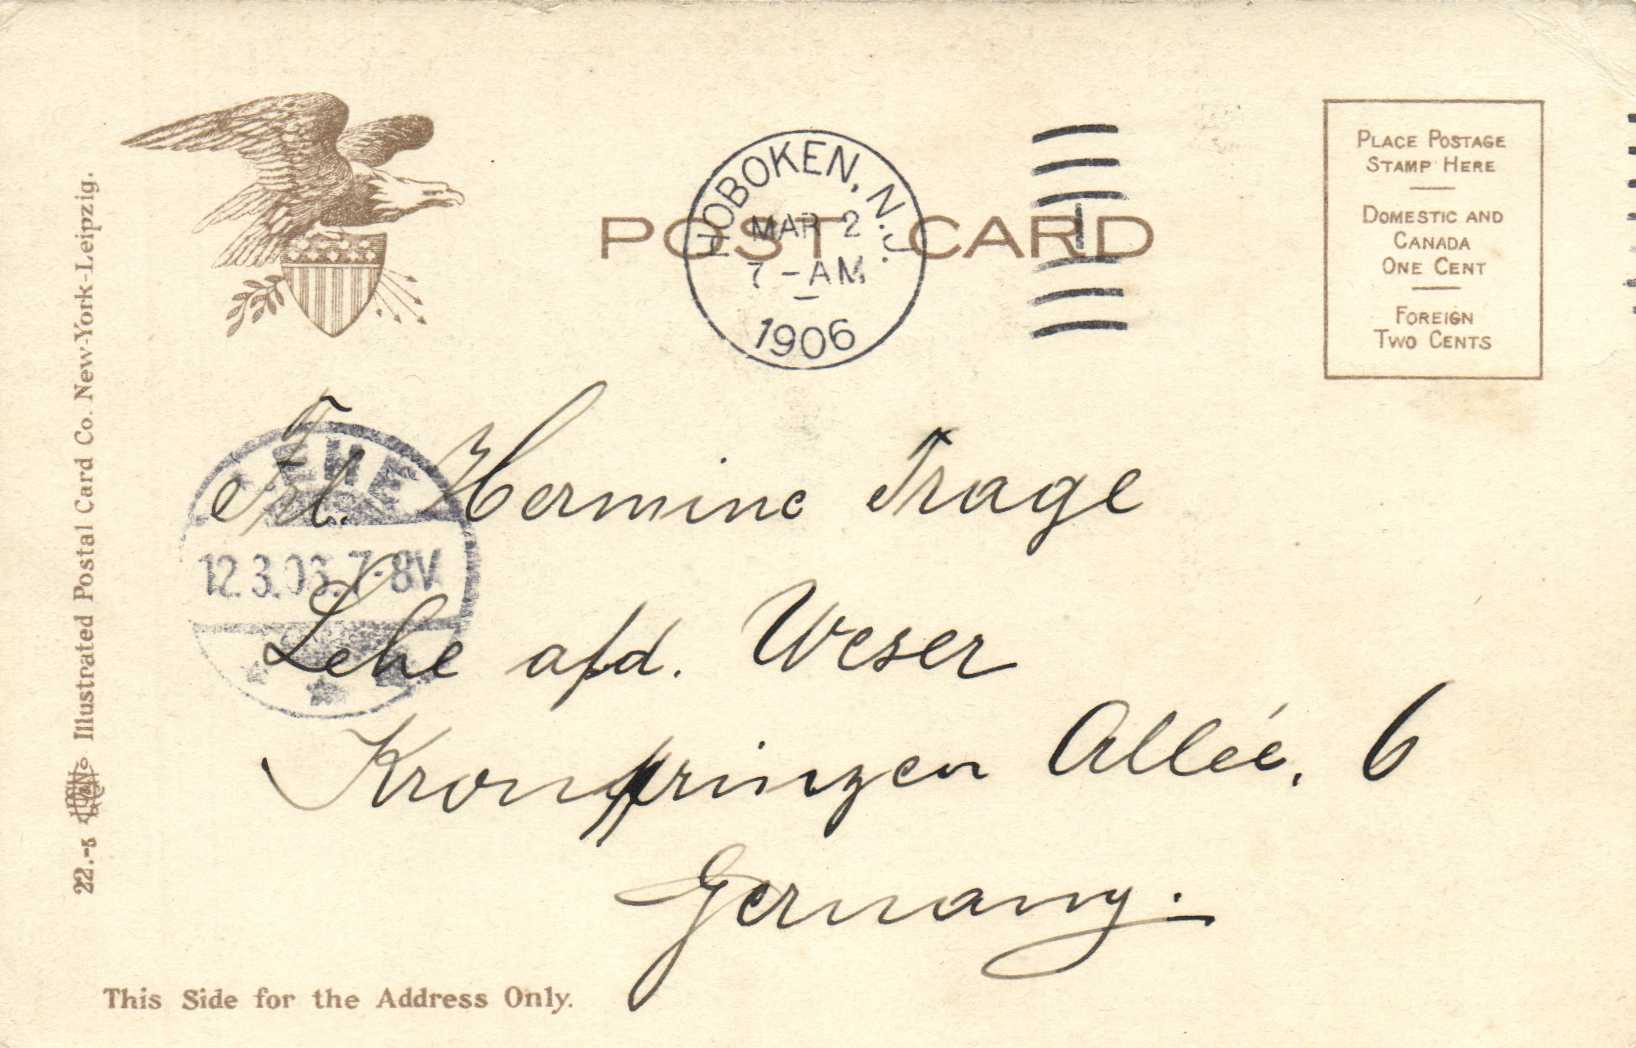 POST CARD
HOBOKEN, N.J.
MAR 2
7-AM
1906
1
PLACE POSTAGE
STAMP HERE
DOMESTIC AND
CANADA
ONE CENT
FOREIGN
TWO CENTS
LEHE
12.3.06.7-8V
Frl. Hermine Trage
Lehe a/d. Weser
Kronprinzen Allée, 6
Germany.
22.-5
Illustrated Postal Card Co. New-York-Leipzig.
This Side for the Address Only.